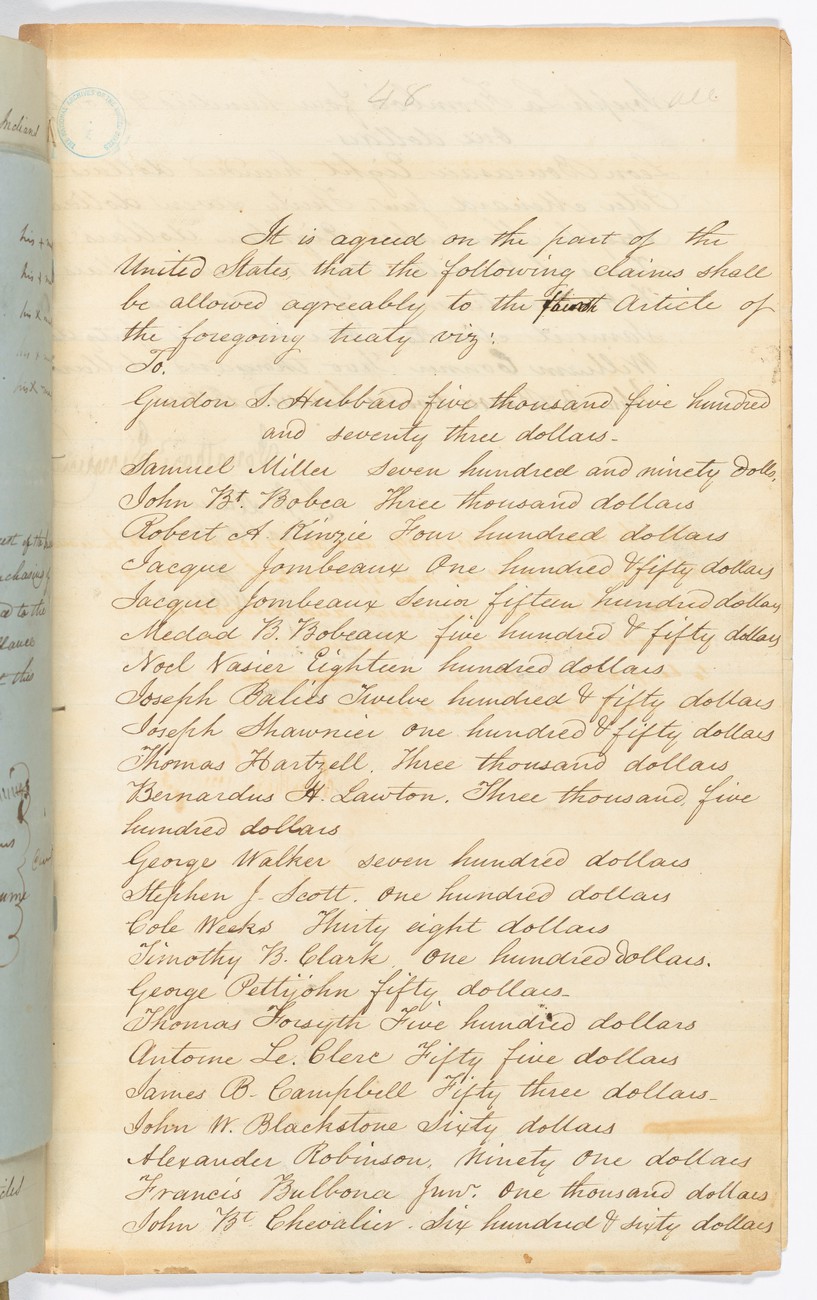 48
It is agreed on the part of the
United States, that the following claims shall
be allowed agreeably to the fourth Article of
the foregoing treaty viz:
To.
Gurdon S. Hubbard five thousand five hundred
and seventy three dollars-
Samuel Miller seven hundred and ninety Dolls,
John Bt. Bobea Three thousand dollars
Robert A. Kinzie Four hundred dollars
Jacque Jombeaux One hundred & fifty dollars
Jacque Jombeaux Senior fifteen hundred dollars
Medad B. Bobeaux five hundred & fifty dollars
Noel Vasier Eighteen hundred dollars
Joseph Balies Twelve hundred & fifty dollars
Joseph Shawnier one hundred & fifty dollars
Thomas Hartzell. Three thousand dollars
Bernardus H. Lawton. Three thousand, five
hundred dollars
George Walker seven hundred dollars
Stephen J. Scott. one hundred dollars
Cole Weeks Thirty eight dollars
Timothy B. Clark one hundred Dollars.
George Pettijohn fifty dollars-
Thomas Forsyth Five hundred dollars
Antoine Le. Clerc Fifty five dollars
James B- Campbell Fifty three dollars-
John W. Blackstone Sixty dollars
Alexander Robinson. Ninety One dollars
Francis Bulbona Junr. One thousand dollars
John Bt. Chevalier. Six hundred & sixty dollars
Indians